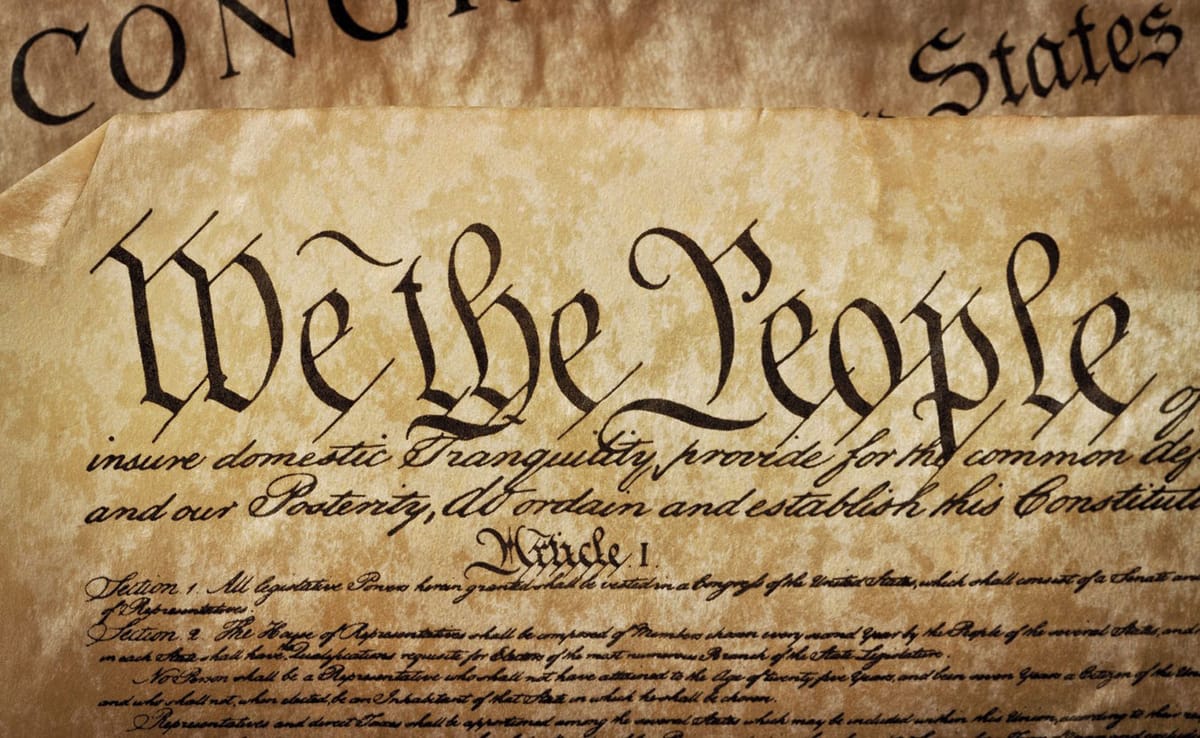 CONGR
States
We the People
of
insure domestic Tranquility, provide for the common def
and our Posterity, do ordain and establish this Constituti
Article. I.
Section. 1. All legislative Powers herein granted shall be vested in a Congress of the United States, which shall consist of a Senate an
of Representatives.
Section. 2. The House of Representatives shall be composed of Members chosen every second Year by the People of the several States, and
in each State shall have the Qualifications requisite for Electors of the most numerous Branch of the State Legislature.
No Person shall be a Representative who shall not have attained to the Age of twenty five Years, and been seven Years a Citizen of the Un
and who shall not, when elected, be an Inhabitant of that State in which he shall be chosen.
Representatives and direct Taxes shall be apportioned among the several States which may be included within this Union, according to their